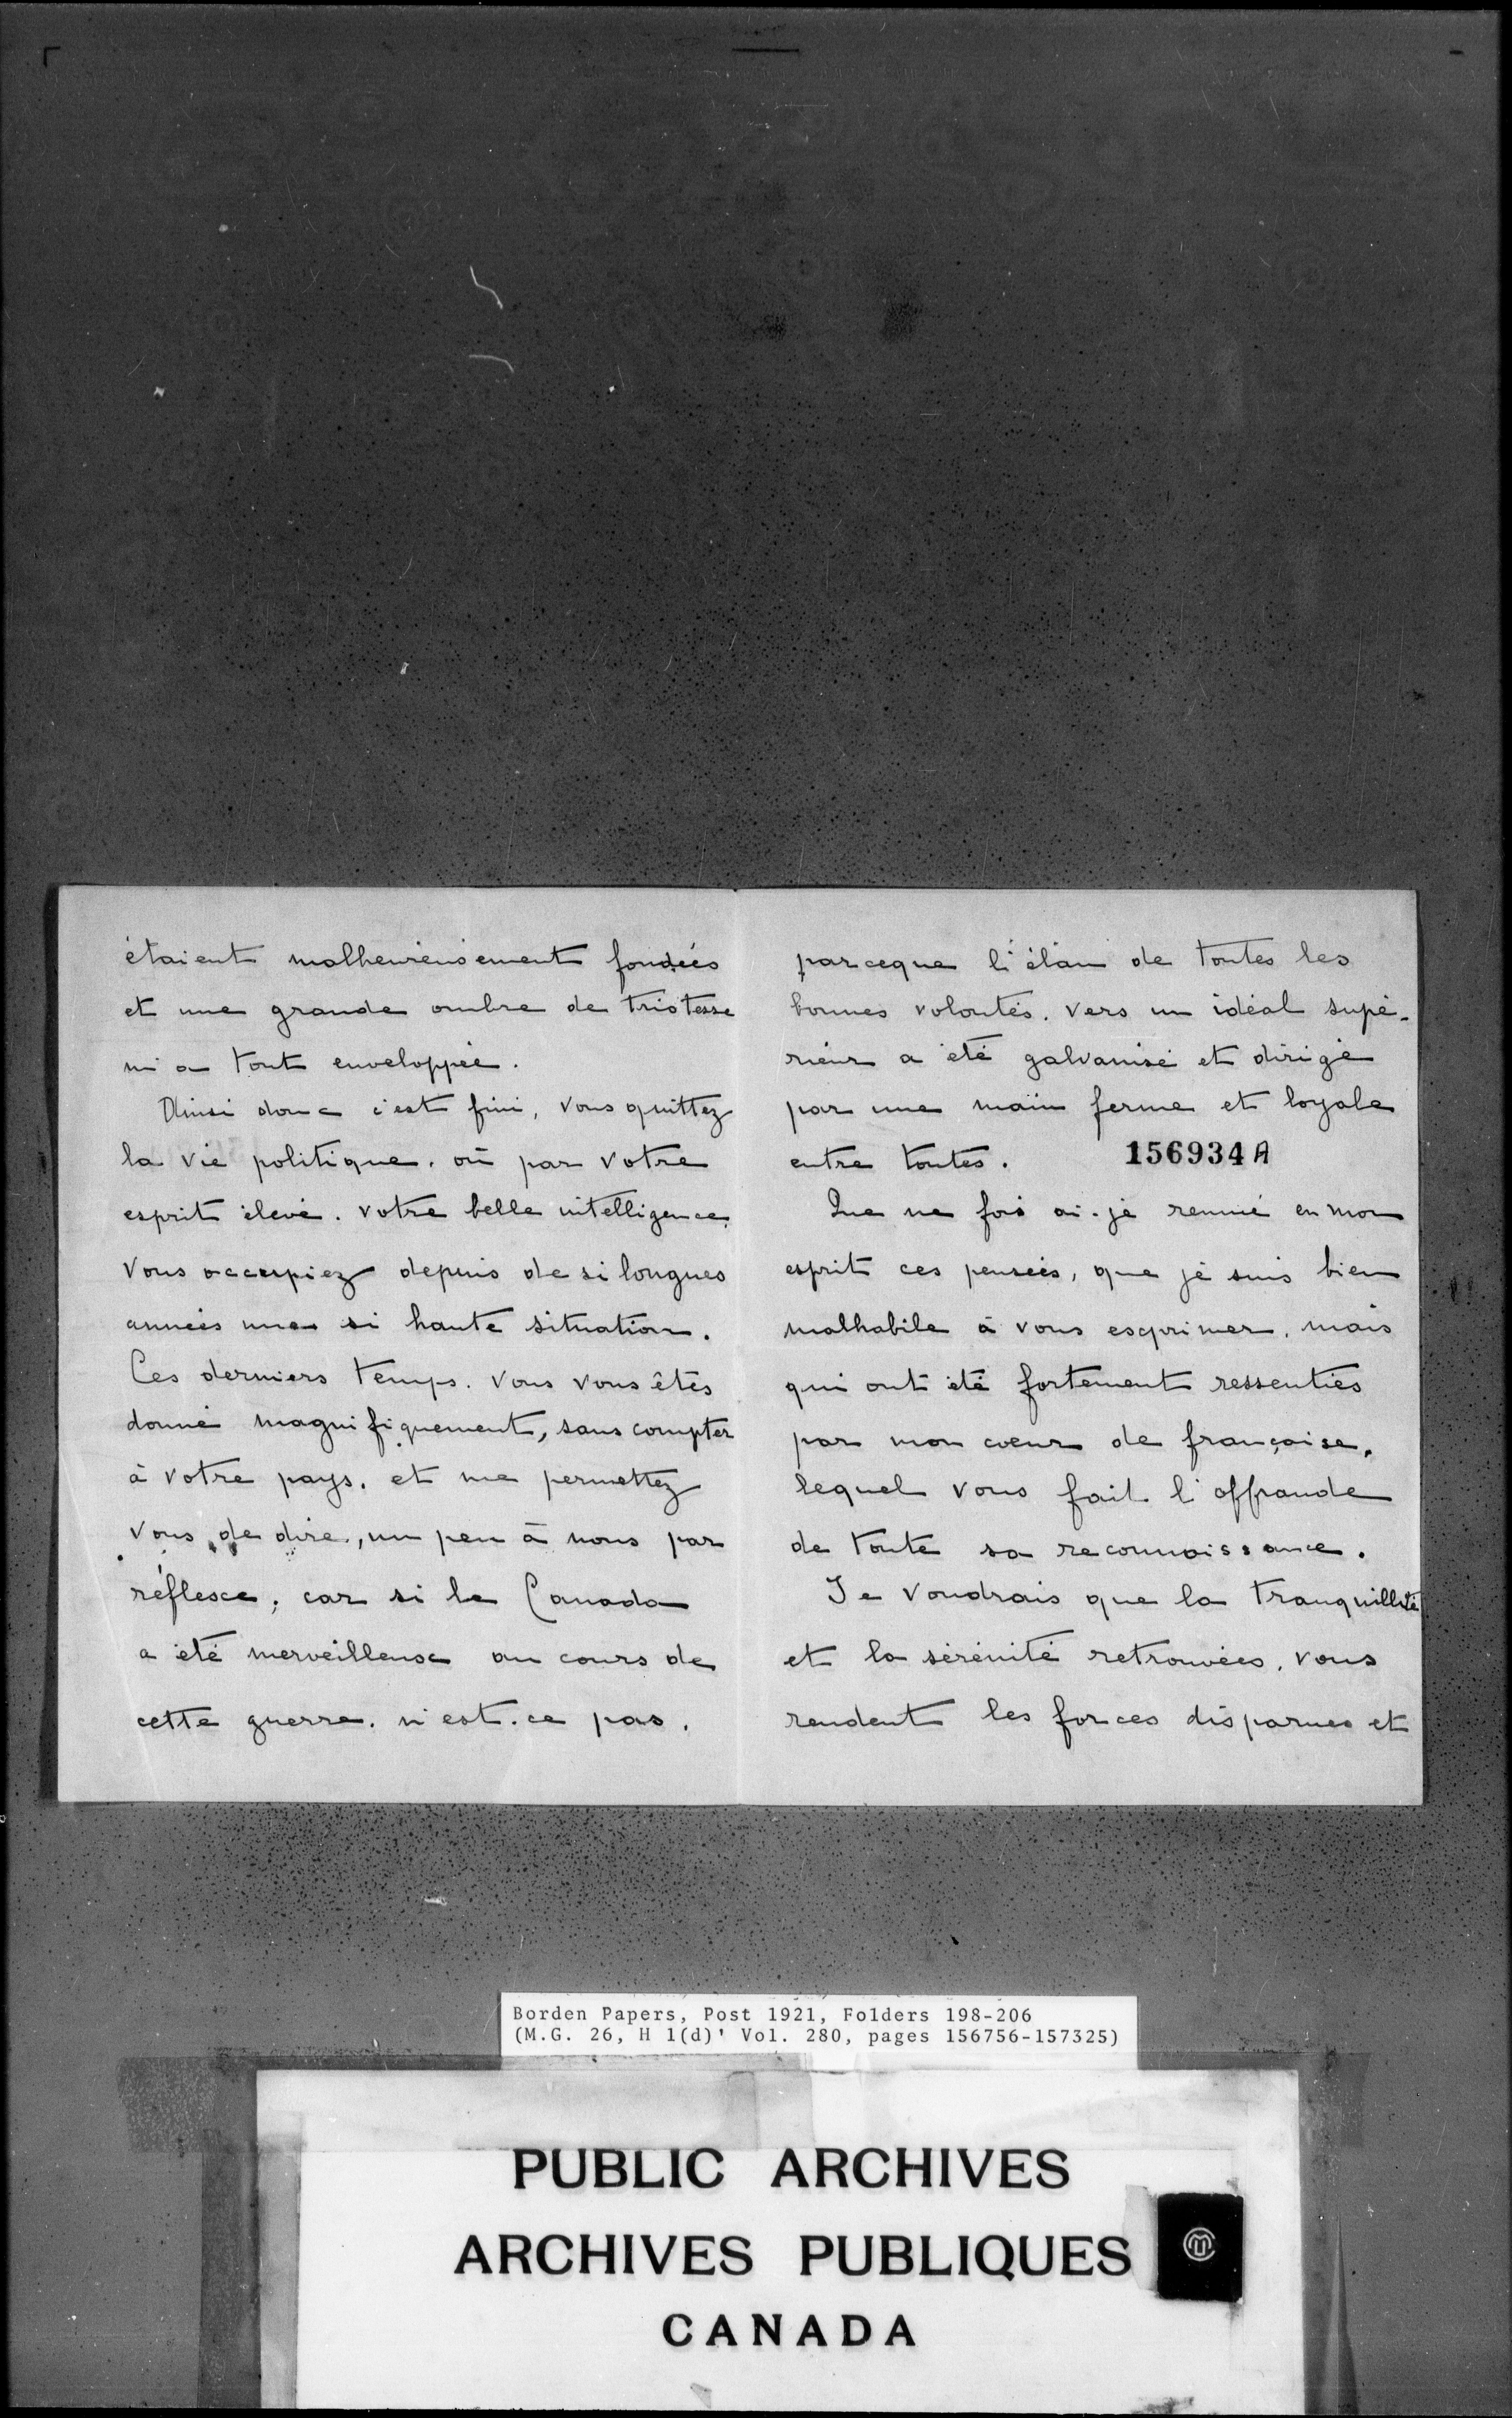 étaient malheureusement fondées
et une grande ombre de tristesse
m'a tout enveloppée.
Ainsi donc c'est fini, vous quittez
la vie politique. où par votre
esprit élevé. votre belle intelligence.
vous occupiez depuis de si longues
années une si haute situation.
Ces derniers temps. vous vous êtes
donné magnifiquement, sans compter
à votre pays. et me permettez
vous de dire, un peu à nous par
réflexe; car si le Canada
a été merveilleux au cours de
cette guerre. n'est-ce pas.
parceque l'élan de toutes les
bonnes volontés. vers un idéal supé-
rieur a été galvanisé et dirigé
par une main ferme et loyale
entre toutes.
156934A
Que de fois ai-je remué en mon
esprit ces pensées, que je suis bien
malhabile à vous exprimer. mais
qui ont été fortement ressenties
par mon cœur de française,
lequel vous fait l'offrande
de toute sa reconnaissance.
Je voudrais que la tranquillité
et la sérénité retrouvées. vous
rendent les forces disparues et
Borden Papers, Post 1921, Folders 198-206
(M.G. 26, H 1(d)' Vol. 280, pages 156756-157325)
PUBLIC ARCHIVES
ARCHIVES PUBLIQUES
CANADA